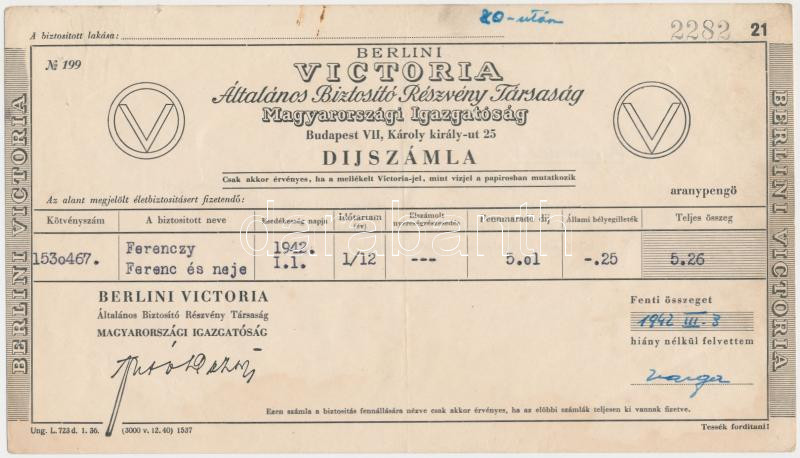 80-után
A biztositott lakása:
2282 21
№ 199
BERLINI
VICTORIA
Általános Biztositó Részvény Társaság
Magyarországi Igazgatóság
Budapest VII, Károly király-ut 25
DIJSZÁMLA
Csak akkor érvényes, ha a mellékelt Victoria-jel, mint vizjel a papirosban mutatkozik
BERLINI VICTORIA
BERLINI VICTORIA
Az alant megjelölt életbiztositásért fizetendő:
aranypengö
Kötvényszám A biztositott neve Esedékesség napja Időtartam (év) Elszámolt nyereségrészesedés Fennmaradó díj Állami bélyegilleték Teljes összeg
1530467. Ferenczy Ferenc és neje 1942. I.1. 1/12 --- 5.01 -.25 5.26
darabanth
BERLINI VICTORIA
Általános Biztositó Részvény Társaság
MAGYARORSZÁGI IGAZGATÓSÁG
Fenti összeget
1942 III. 3
hiány nélkül felvettem
Varga
Ezen számla a biztositás fennállására nézve csak akkor érvényes, ha az előbbi számlák teljesen ki vannak fizetve.
Ung. L. 723 d. 1. 36. (3000 v. 12. 40) 1537
Tessék forditani!